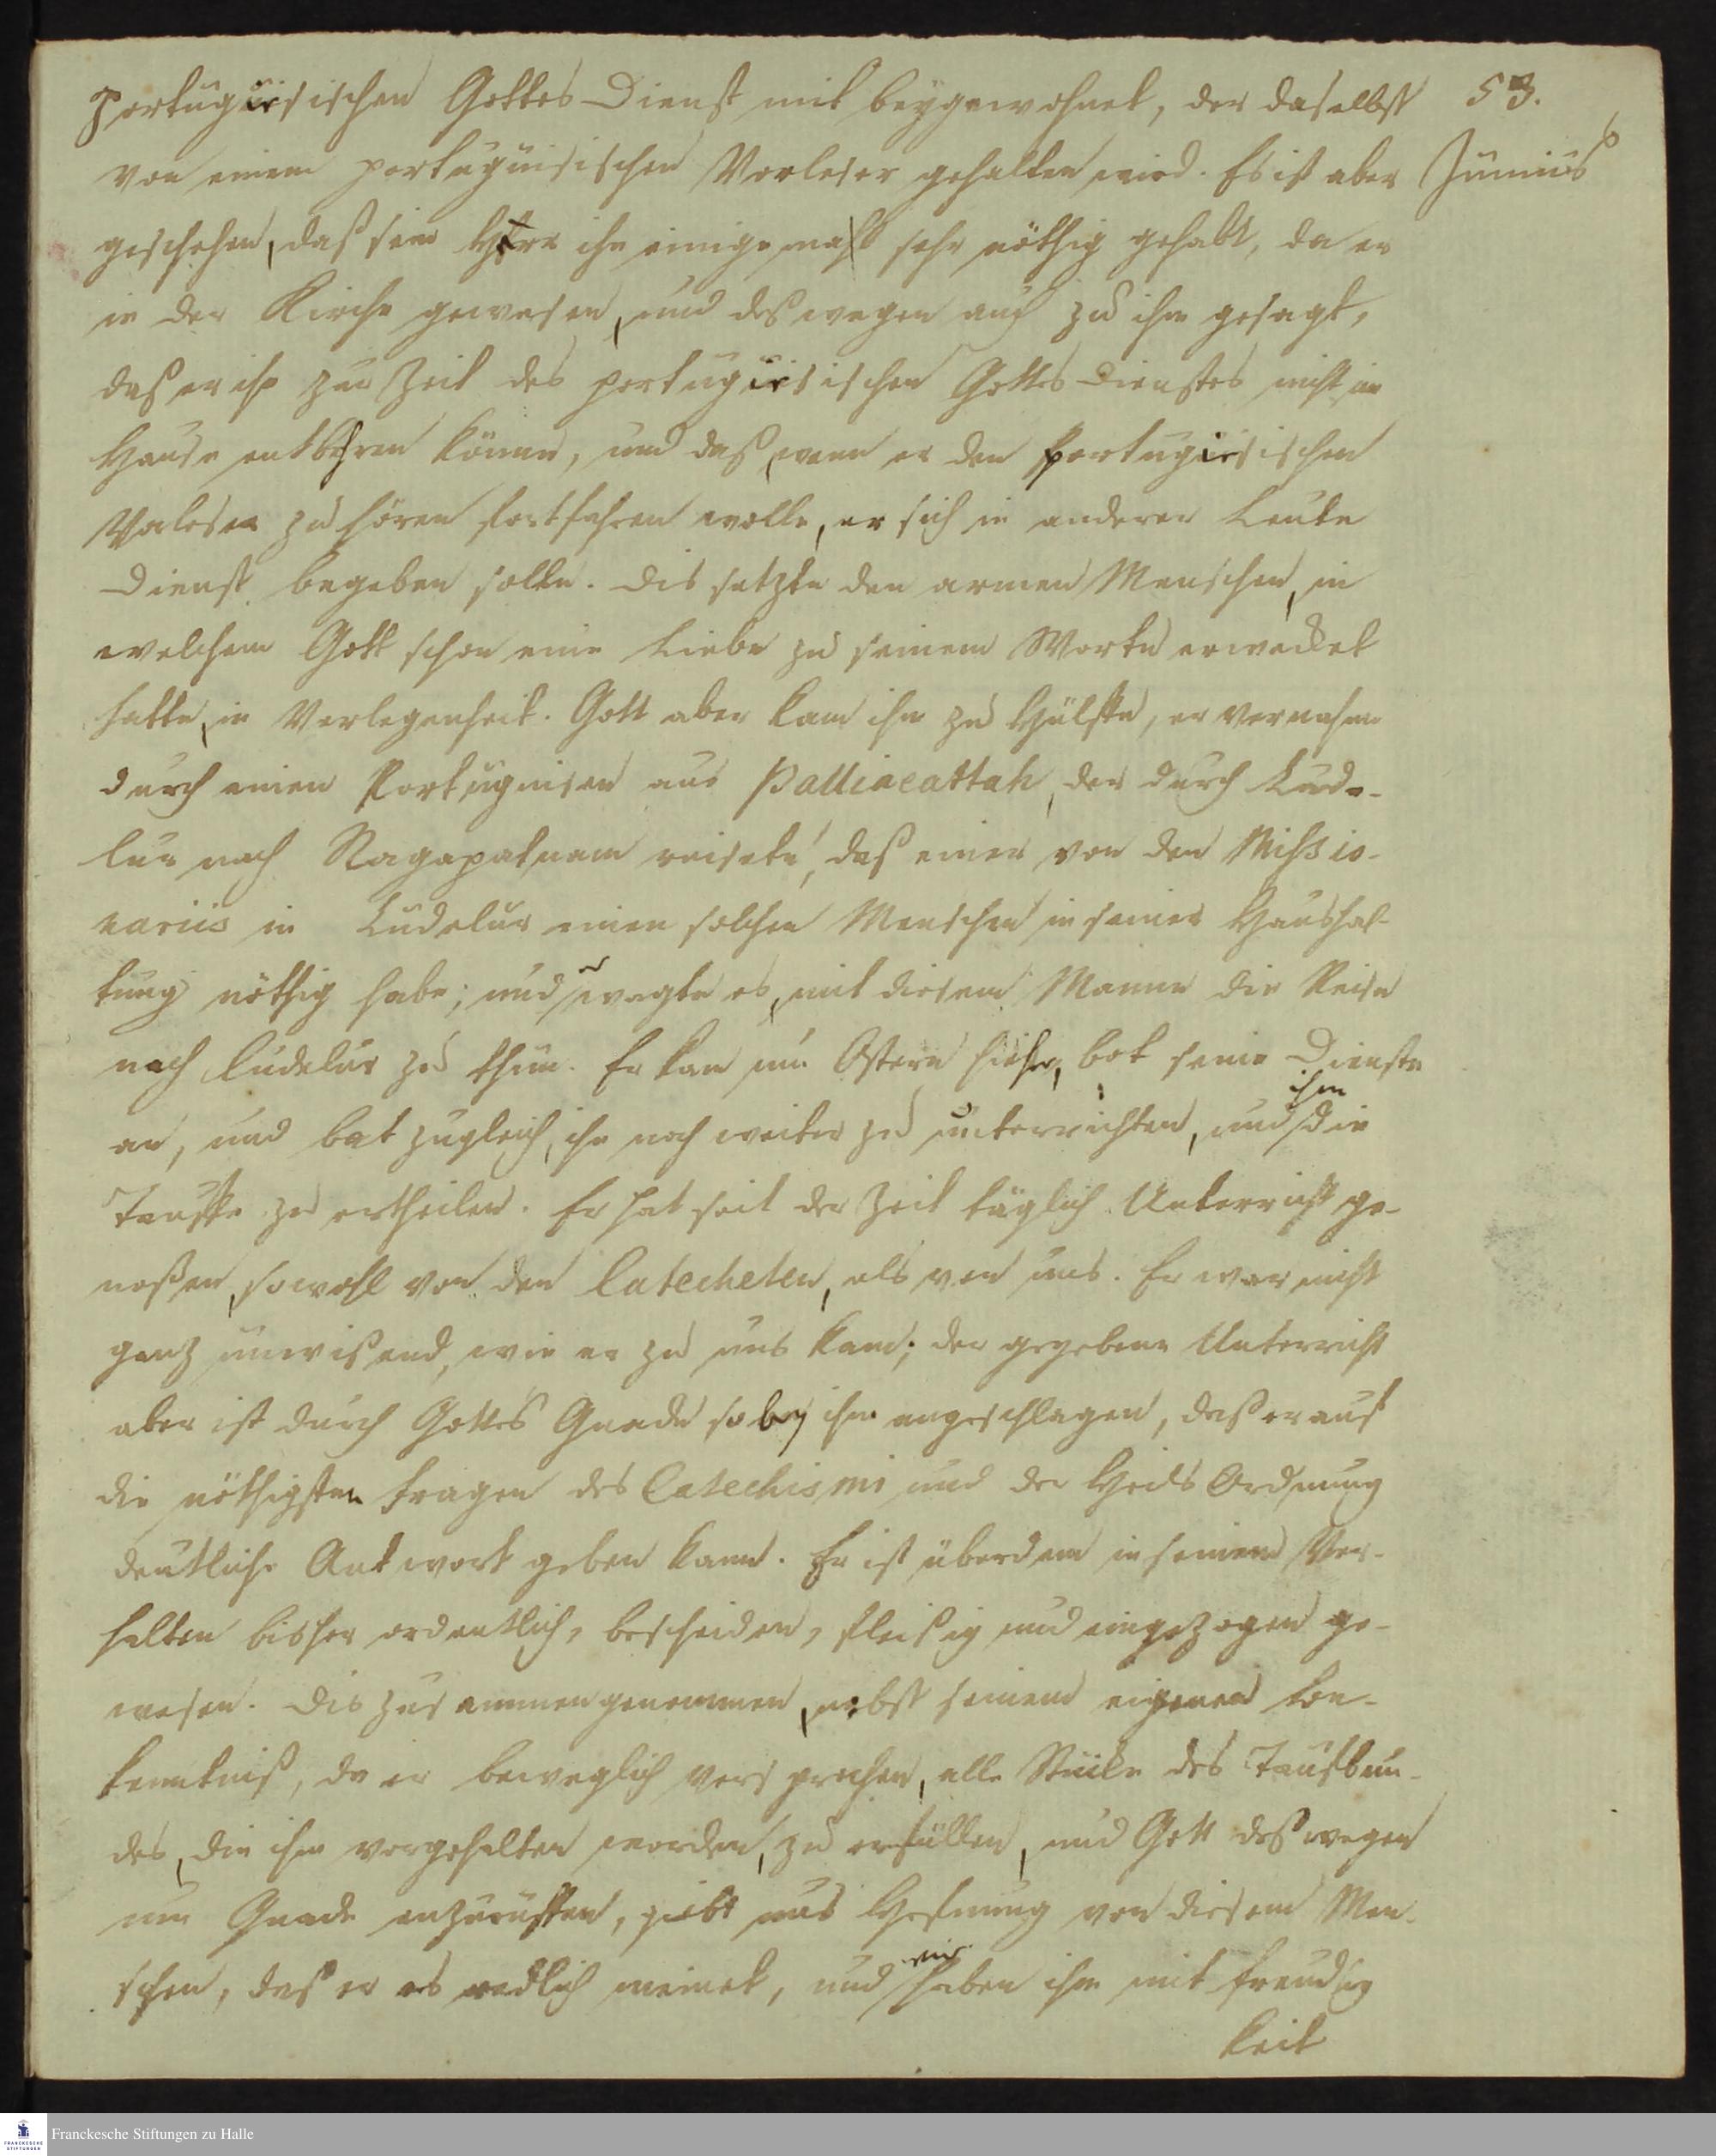 portugiesischen Gottes Dienst mit beygewohnet, der daselbst 53.
von einem portugiesischen Vorleser gehalten wird. Es ist aber Junius
geschehen, daß sein Herr ihn einige mahl sehr nöthig gehabt, da er
in der Kirche gewesen, und deßwegen auch zu ihm gesagt,
daß er ihn zur Zeit des portugiesischen Gottes Dienstes nicht im
Hause entbehren könne, und daß, wenn er den portugiesischen
Vorleser zu hören fortfahren wolle, er sich in anderer Leute
Dienst begeben solle. Dis setzte den armen Menschen, in
welchem Gott schon eine Liebe zu seinem Worte erwecket
hatte, in Verlegenheit. Gott aber kam ihm zu Hülffe, er vernahm
durch einen Portugiesen aus Palliacattah, der durch Cude-
lur nach Nagapatnam reisete, daß einer von den Missio-
nariis in Cudelur einen solchen Menschen in seiner Haushal-
tung nöthig habe; und wagte es, mit diesem Manne die Reise
nach Cudelur zu thun. Er kam um Ostern hieher, bot seine Dienste
an, und bat zugleich, ihn noch weiter zu unterrichten, und ihm die
Tauffe zu ertheilen. Er hat seit der Zeit täglich Unterricht ge-
noßen, sowohl von den Catecheten, als von uns. Er war nicht
ganz unwißend, wie er zu uns kam; der gegebene Unterricht
aber ist durch Gottes Gnade so bey ihm angeschlagen, daß er auf
die nöthigsten Fragen des Catechismi und der Heils Ordnung
deutliche Antwort geben kann. Er ist überdem in seinem Ver-
halten bisher ordentlich, bescheiden, fleißig und eingezogen ge-
wesen. Dis zusammengenommen, nebst seinem eigenen
kenntniß, da er beweglich versprochen, alle Stücke des Taufbun-
des, die ihm vorgehalten worden, zu erfüllen, und Gott deßwegen
um Gnade anzuruffen, giebt uns Hofnung von diesem Men-
schen, daß er es redlich meinet, und wir haben ihn mit Freudig
keit
Franckesche Stiftungen zu Halle